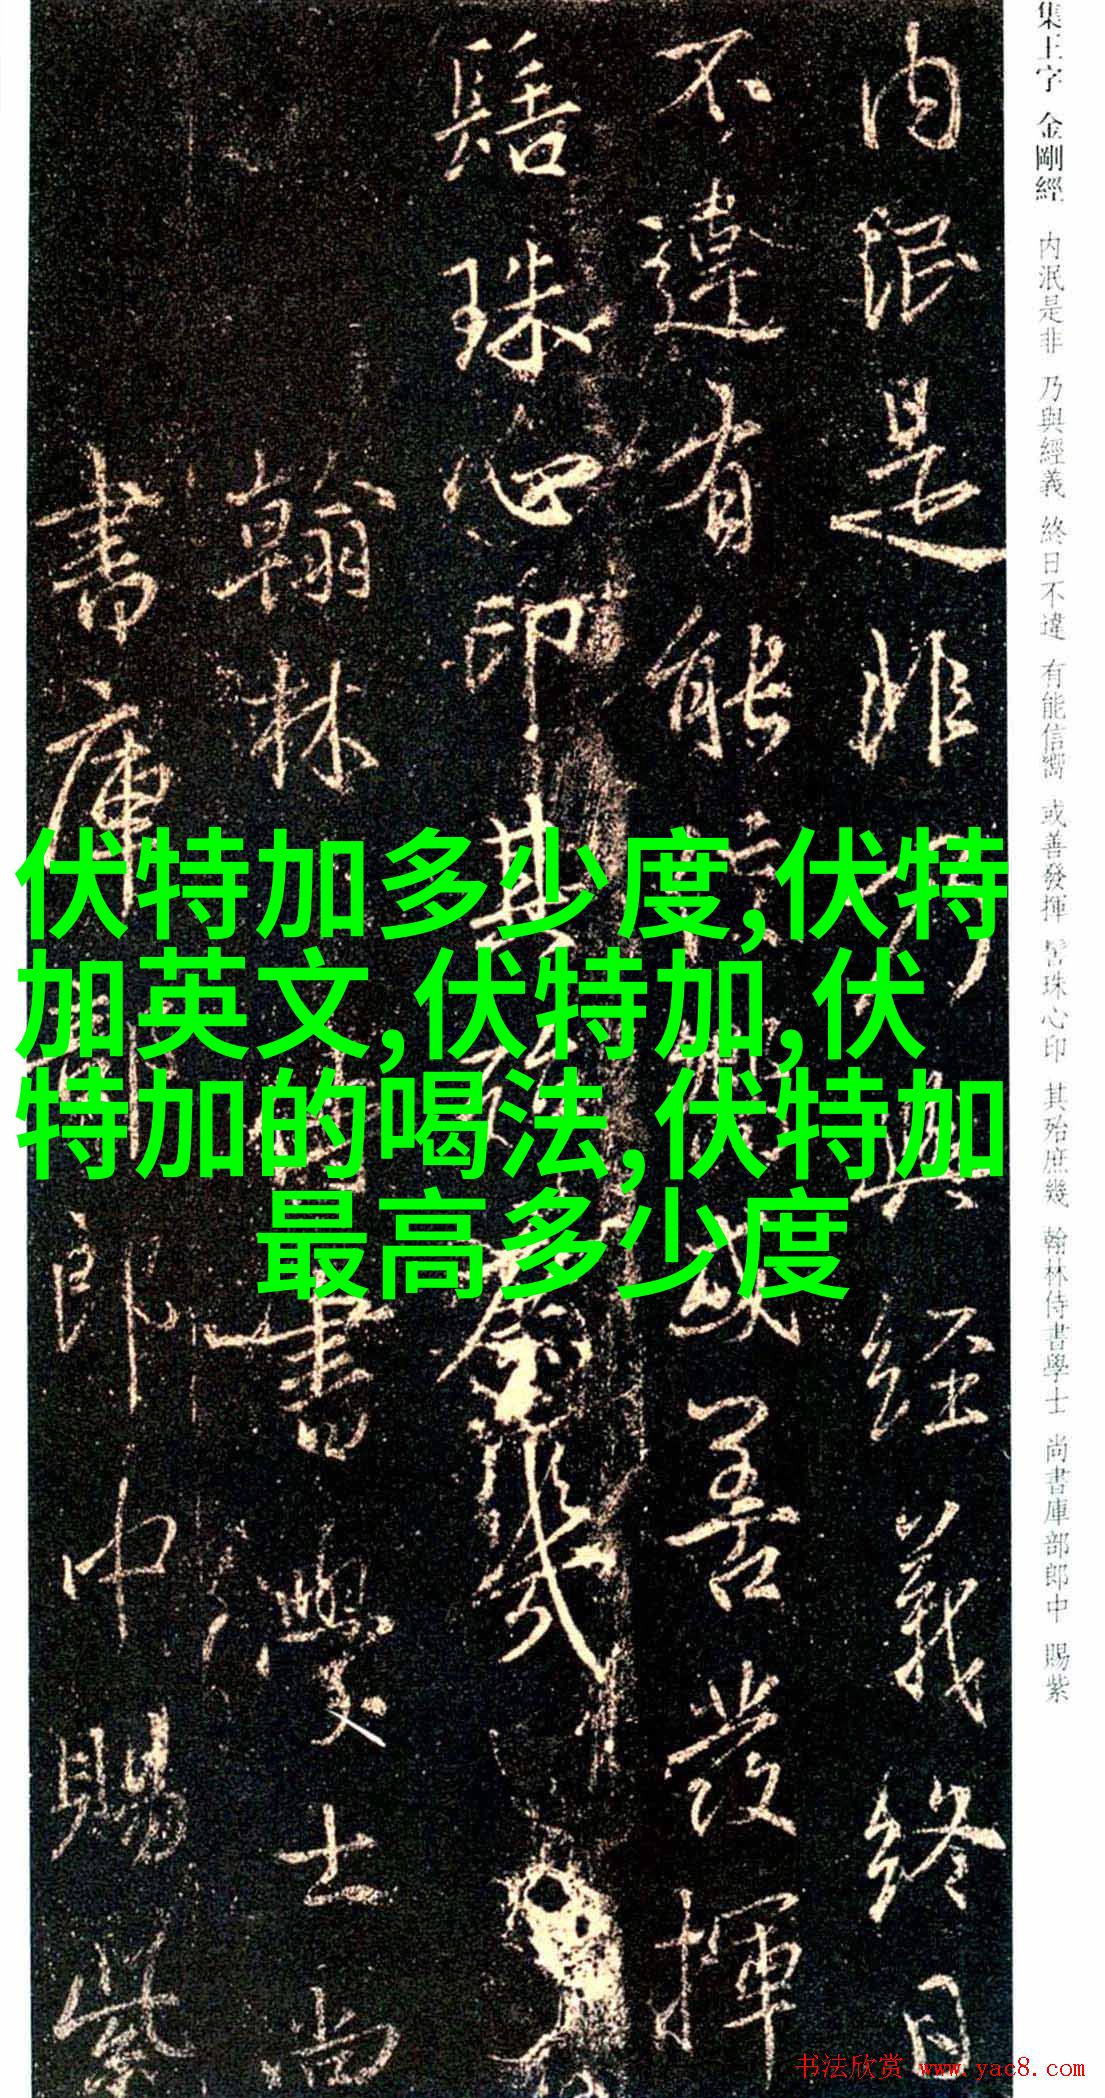 集王字 金剛經 内泯是非 乃與經義 終日不違 有能信嚮 或善發揮 髻珠心印 其殆庶幾 翰林侍書學士 尚書庫部郎中 賜紫
内泯是非乃與經義終日
不違有能信嚮或善發揮
髻珠心印其殆庶幾
翰林侍書學士尚
書庫部郎中賜紫
伏特加多少度,伏特
加英文,伏特加,伏
特加的喝法,伏特加
最高多少度
书法欣赏 www.yac8.com